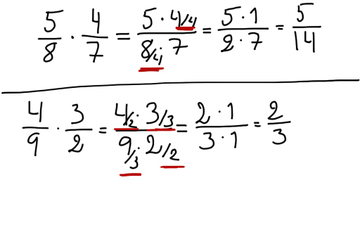 5/8 · 4/7 = 5 · 4/4 / 8/4 · 7 = 5 · 1 / 2 · 7 = 5/14
4/9 · 3/2 = 4/2 · 3/3 / 9/3 · 2/2 = 2 · 1 / 3 · 1 = 2/3